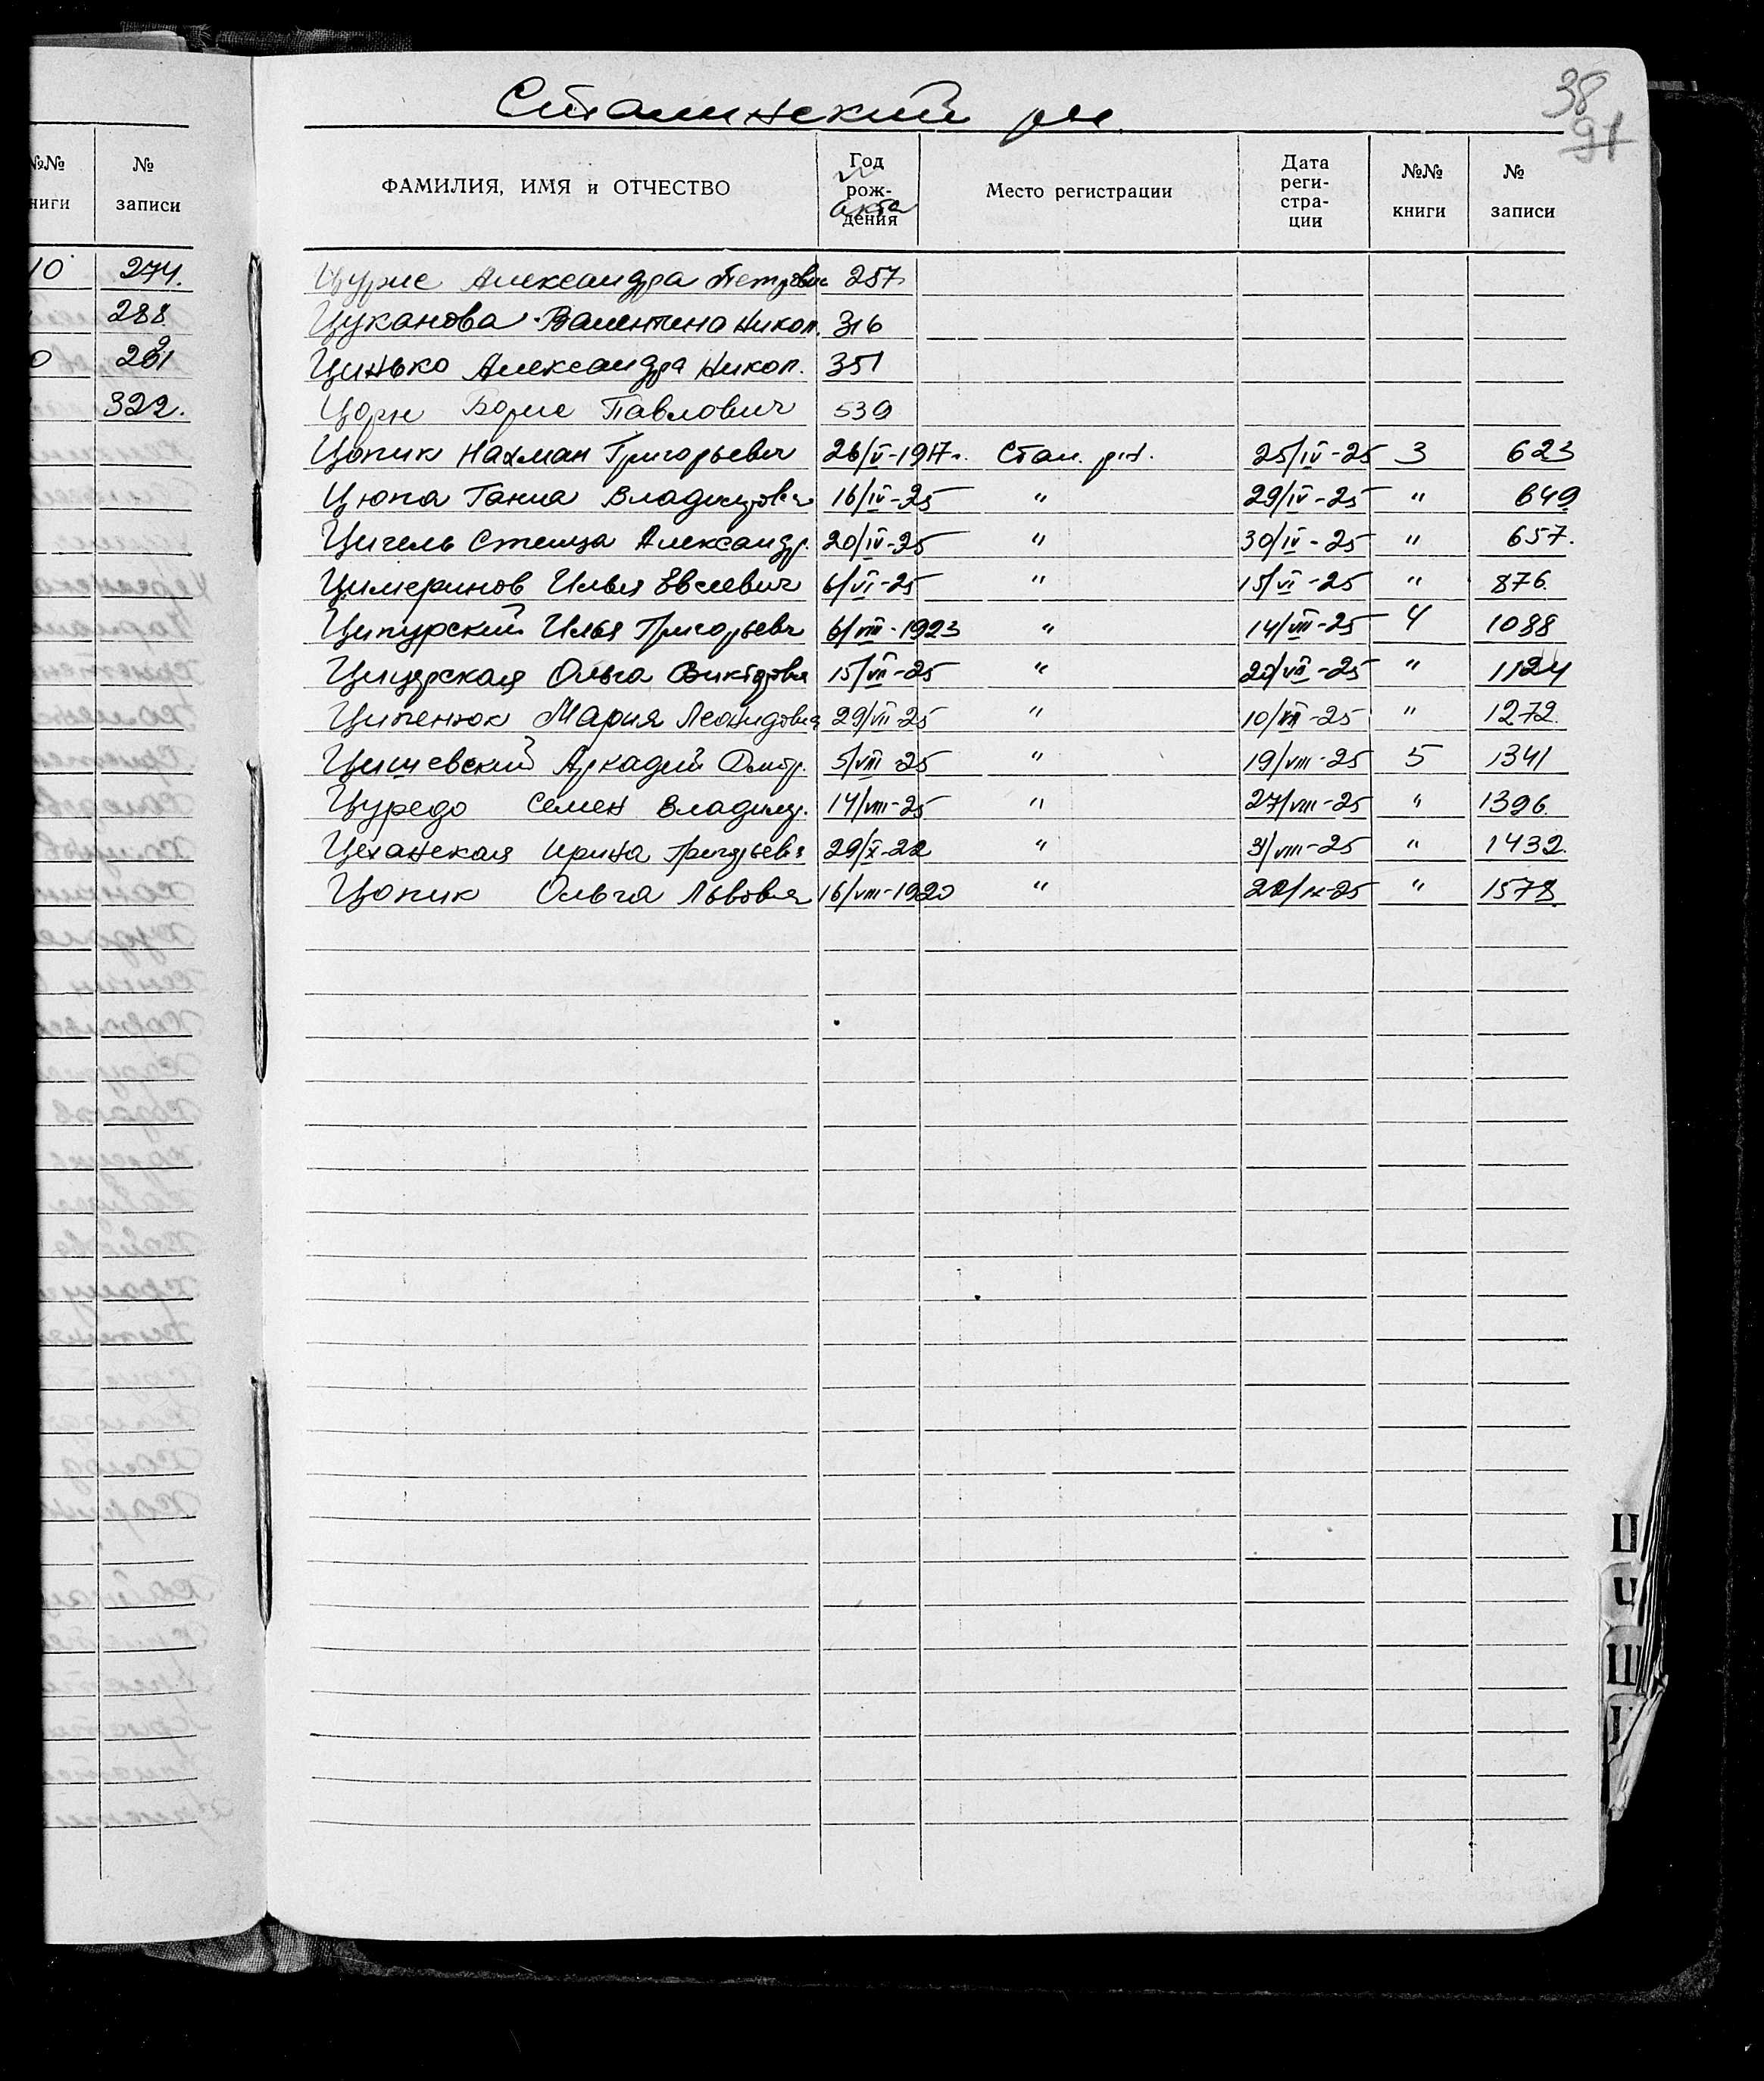 Сталинский р-н
38
91
№№ книги № записи
10 274.
288.
0 291
322.
ФАМИЛИЯ, ИМЯ и ОТЧЕСТВО Год рождения № акта Место регистрации Дата регистрации №№ книги № записи
Цурис Александра Петровн 257
Цуканова Валентина Никол. 316
Цинько Александра Никол. 351
Цорн Борис Павлович 539
Цопик Нахман Григорьевич 26/V-1917г. Стал. р-н. 25/IV-25 3 623
Цюпа Ганна Владимировна 16/IV-25 " 29/IV-25 " 649
Цигель Александр. 20/IV-25 " 30/IV-25 " 657.
Цимеринов Илья Евсеевич 6/VI-25 " 15/VI-25 " 876.
Ципурский Илья Григорьевч 6/VIII-1923 " 14/VII-25 4 1088
Ольга Викторовна 15/VII-25 " 20/VII-25 " 1124
Ципенюк Мария Леонидовна 29/VII-25 " 10/VIII-25 " 1272.
Цишевский Аркадий Дмитр. 5/VIII-25 " 19/VIII-25 5 1341
Цуредо Семен Владимир. 14/VIII-25 " 27/VIII-25 " 1396.
Цеханская Ирина Григорьевна 29/X-22 " 31/VIII-25 " 1432.
Цопик Ольга Львовна 16/VIII-1920 " /IX-25 " 1578.
Ц
Ч
Ш